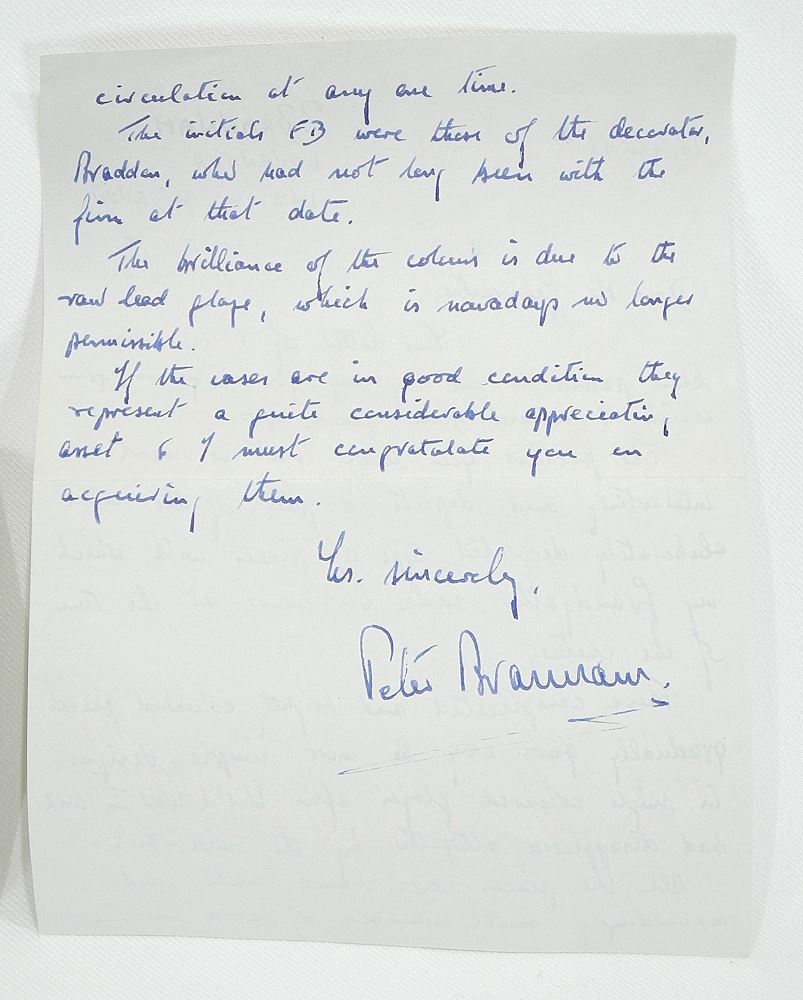 circulation at any one time.
The initials FB were those of the decorator,
Braddon, who had not long been with the
firm at that date.
The brilliance of the colours is due to the
raw lead glaze, which is nowadays no longer
permissible.
If the vases are in good condition they
represent a quite considerable appreciating
asset & I must congratulate you on
acquiring them.
Yrs. sincerely,
Peter Brannam.